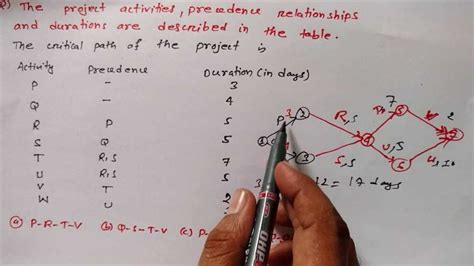 The project activities, precedence relationships
and durations are described in the table.
The critical path of the project is
Activity Precedence Duration (in days)
P - 3
Q - 4
R P 5
S Q 5
T R,S 7
U R,S 5
V T 2
W U
(a) P-R-T-V (b) Q-S-T-V (c) P-
P 3 2
R, 5
7
5
2
1
3
4
S, 5
U, 5
6
3 12 = 17 days